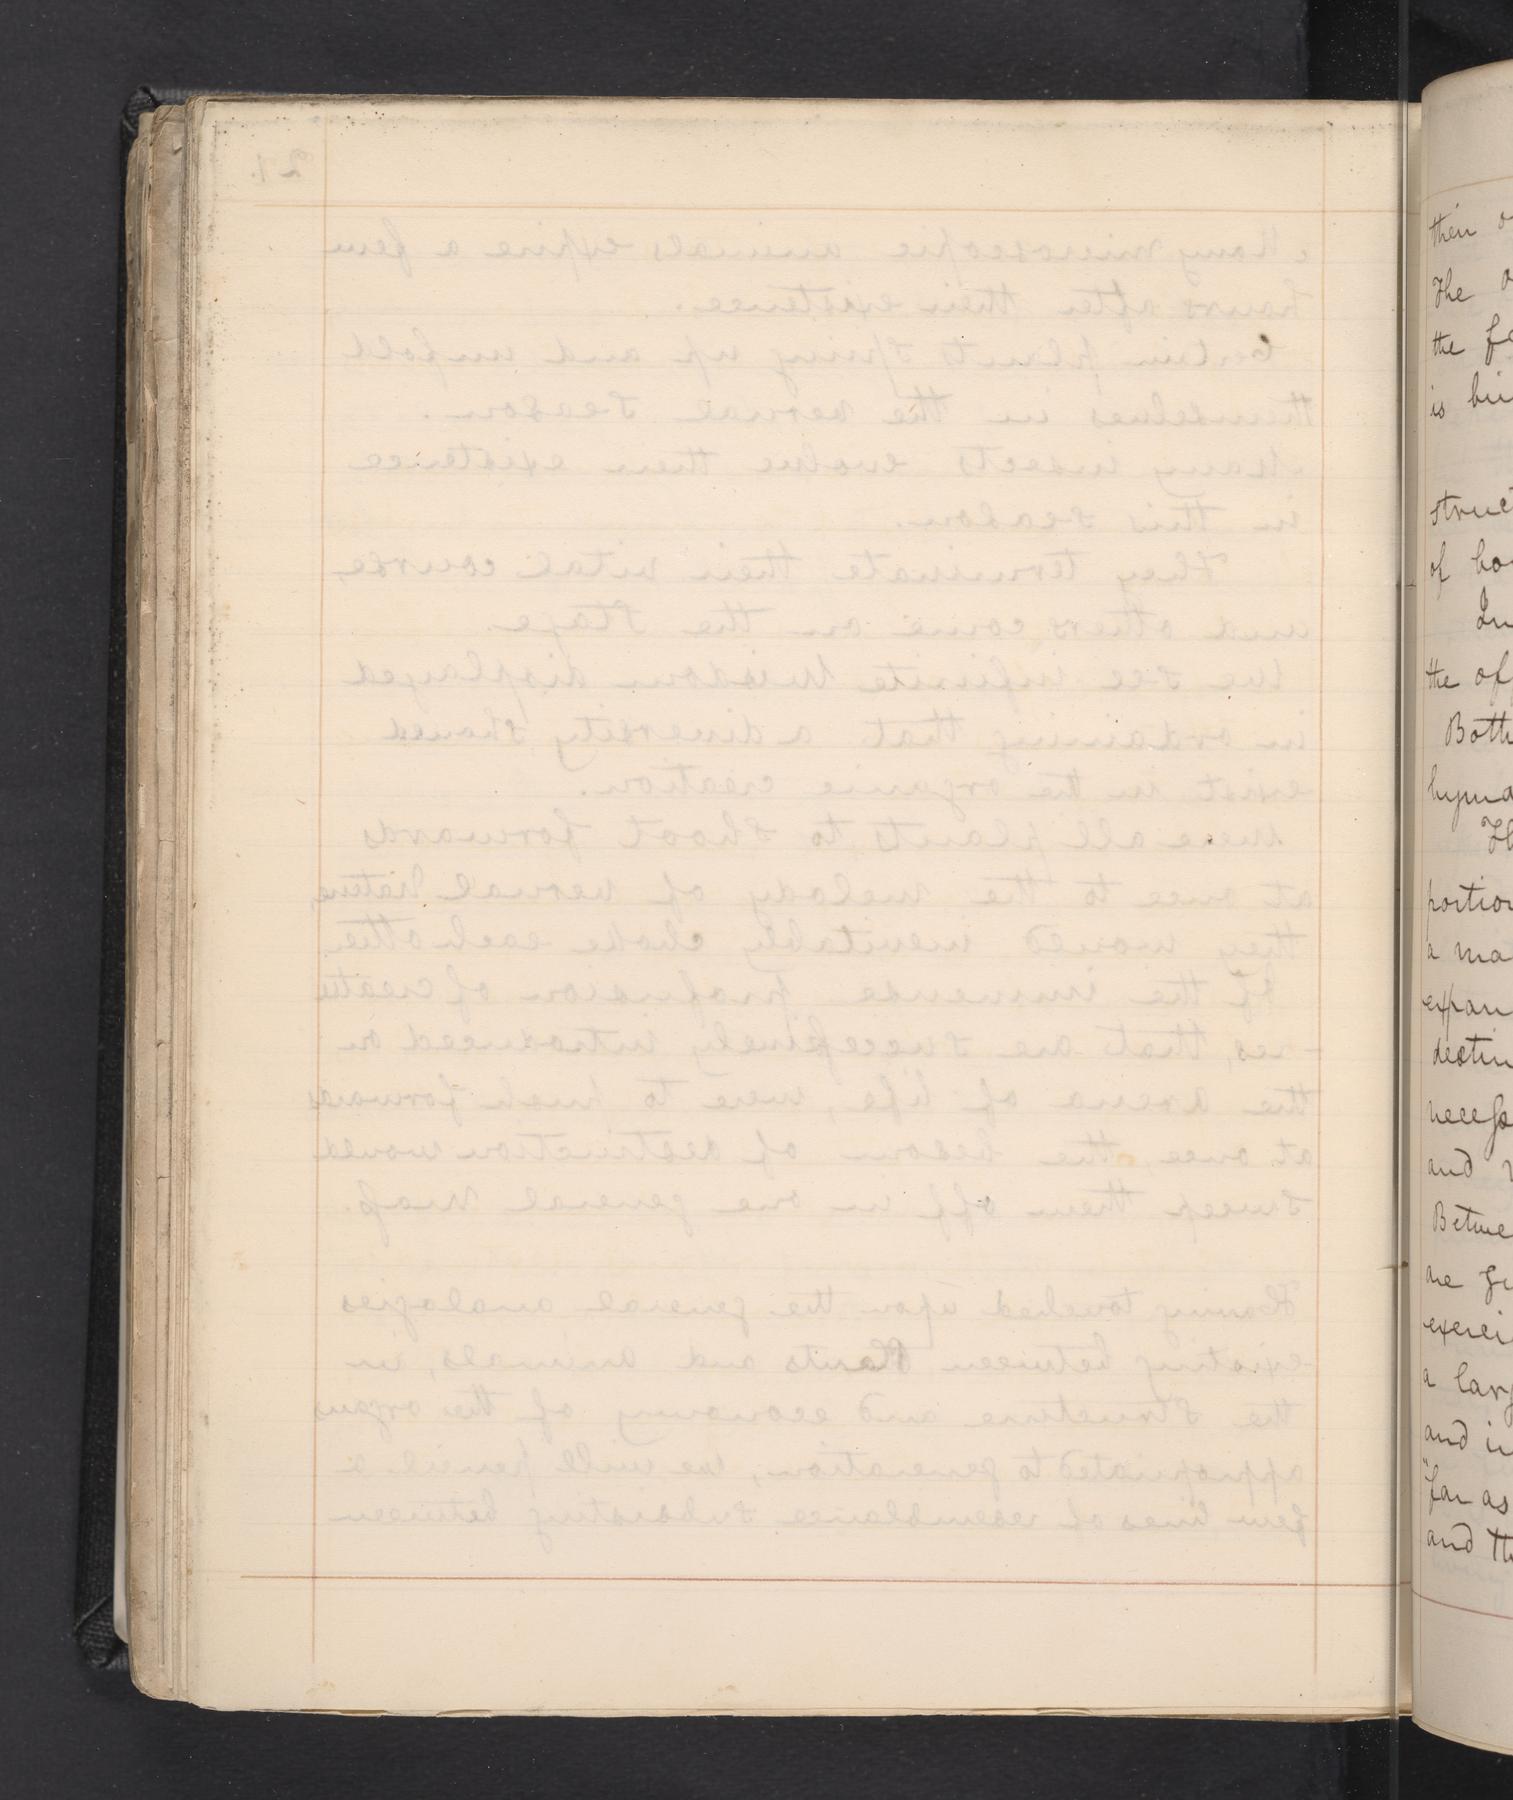 21.
Many microscopic animals expire a few
hours after their existence.
Certain plants spring up and unfold
themselves in the vernal season.
Many insects evolve their existence
in this season.
They terminate their vital course,
and others come on the stage.
We see infinite Wisdom displayed
in ordaining that a diversity should
exist in the organic creation.
Were all plants to shoot forwards
at once to the melody of vernal Nature,
they would inevitably choke each othe
If the immense profusion of creatu
-res, that are successively introduced on
the arena of life, were to push forwards
at once, the besom of destruction would
sweep them off in one general Mass.
Having touched upon the general analogies
existing between Plants and animals, in
the structure and economy of the organs
appropriated to generation, we will pencil a
few lines of resemblance subsisting between
then
The
the
is
struct
of
In
the of
Both
portion
a
expan
destin
and
Betwe
are
exerci
a larg
and in
"far as
and th